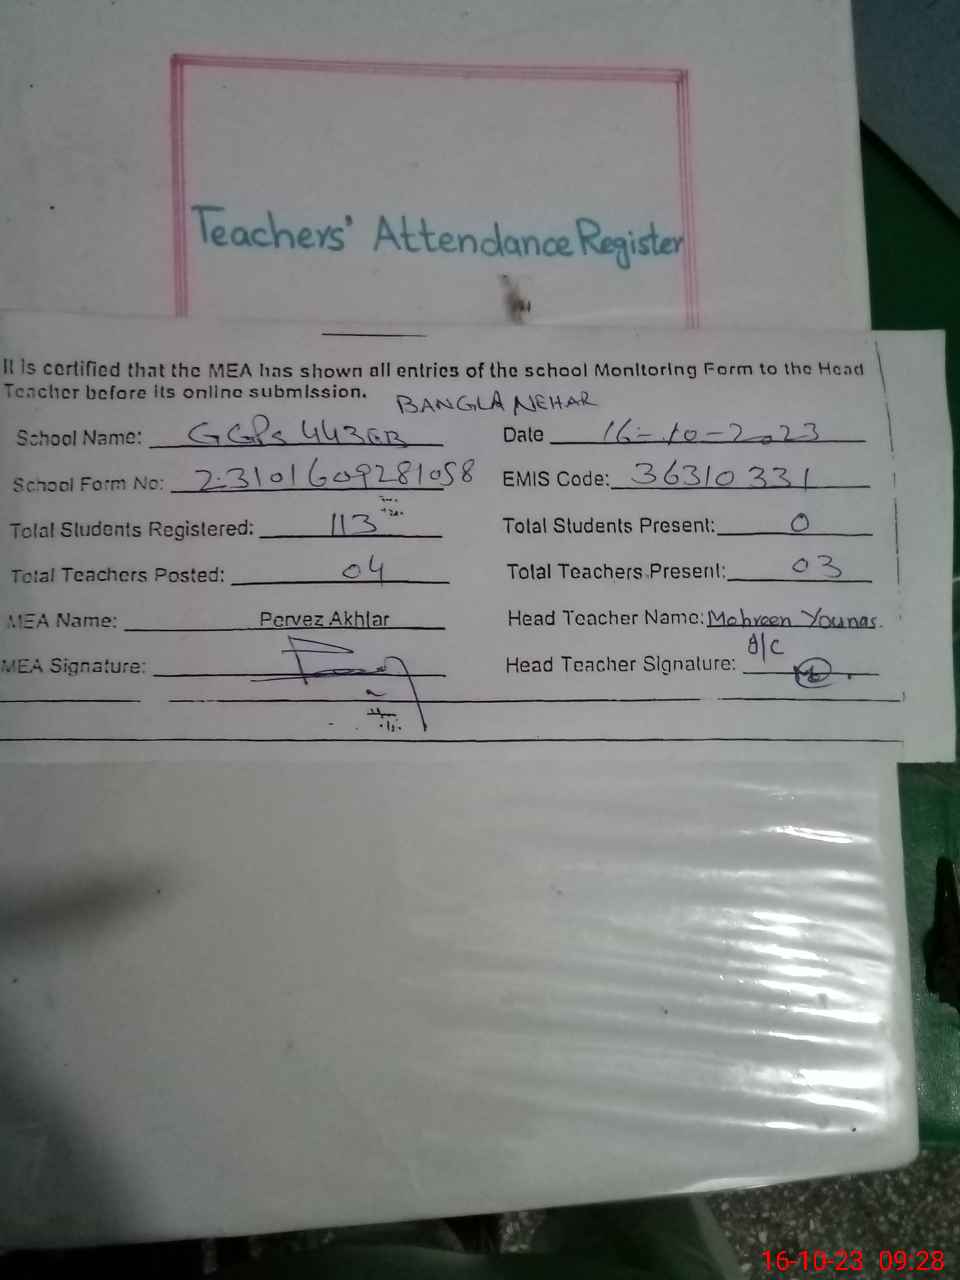 Teachers' Attendance Register
It is certified that the MEA has shown all entries of the school Monitoring Form to the Head
Teacher before its online submission.
BANGLA NEHAR
School Name: GGPS 443GB Date 16-10-2023
School Form No: 23101609281058 EMIS Code: 36310331
Total Students Registered: 113 Total Students Present: 0
Total Teachers Posted: 04 Total Teachers Present: 03
MEA Name: Pervez Akhtar Head Teacher Name: Mehreen Younas.
MEA Signature: Head Teacher Signature: I/C
16-10-23 09:28